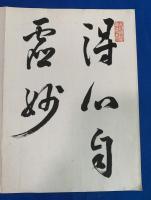 得心自
虛妙